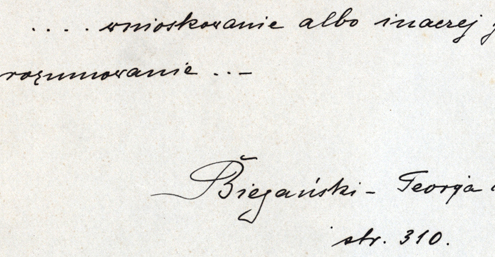 .... wnioskowanie albo inaczej
rozumowanie ...
Biegański - Teorja
str. 310.